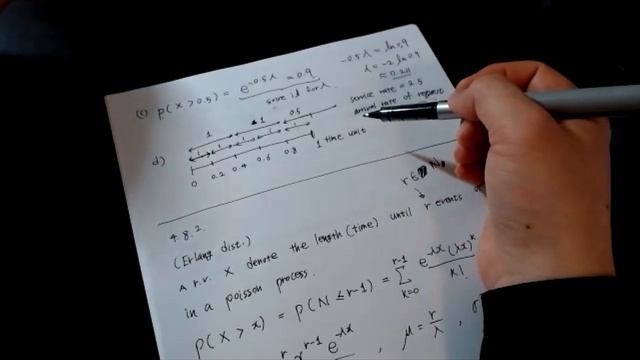 (c) P(X > 0.5) = e^{-0.5λ} = 0.9
solve it for λ.
-0.5λ = ln 0.9
λ = -2 ln 0.9
≈ 0.211
service rate = 2.5
arrival rate of request
d)
1 1 0.5
0 0.2 0.4 0.6 0.8 1 time unit
4.8.2.
(Erlang dist.)
r ∈ N
A r.v. X denote the length (time) until r events
in a poisson process.
P(X > x) = P(N ≤ r-1) = \sum_{k=0}^{r-1} \frac{e^{-λx} (λx)^k}{k!}
x^{r-1} e^{-λx} , μ = \frac{r}{λ} ,